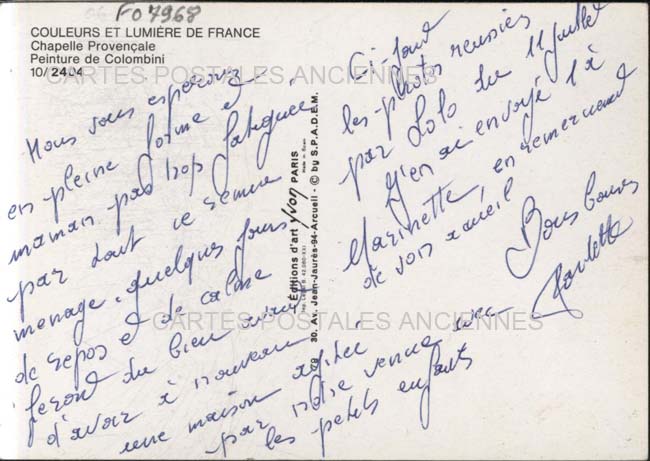 FO 7968
COULEURS ET LUMIÈRE DE FRANCE
Chapelle Provençale
Peinture de Colombini
10/24.04
CARTES POSTALES ANCIENNES
Nous vous espérons
en pleine forme et
maman pas trop fatiguée
par tout ce remue
ménage. Quelques jours
de repos et de calme
feront du bien avant
d'avoir à nouveau
une maison agitée
par notre venue avec
les petits enfants
Editions d'art yvon PARIS
30, Av. Jean-Jaurès-94-Arcueil - © by S.P.A.D.E.M.
Ci-joint
les photos réussies
par Lolo du 11 juillet
J'en ai envoyé 1 à
Marinette, en remerciement
de son accueil
Bons baisers
Paulette
CARTES POSTALES ANCIENNES